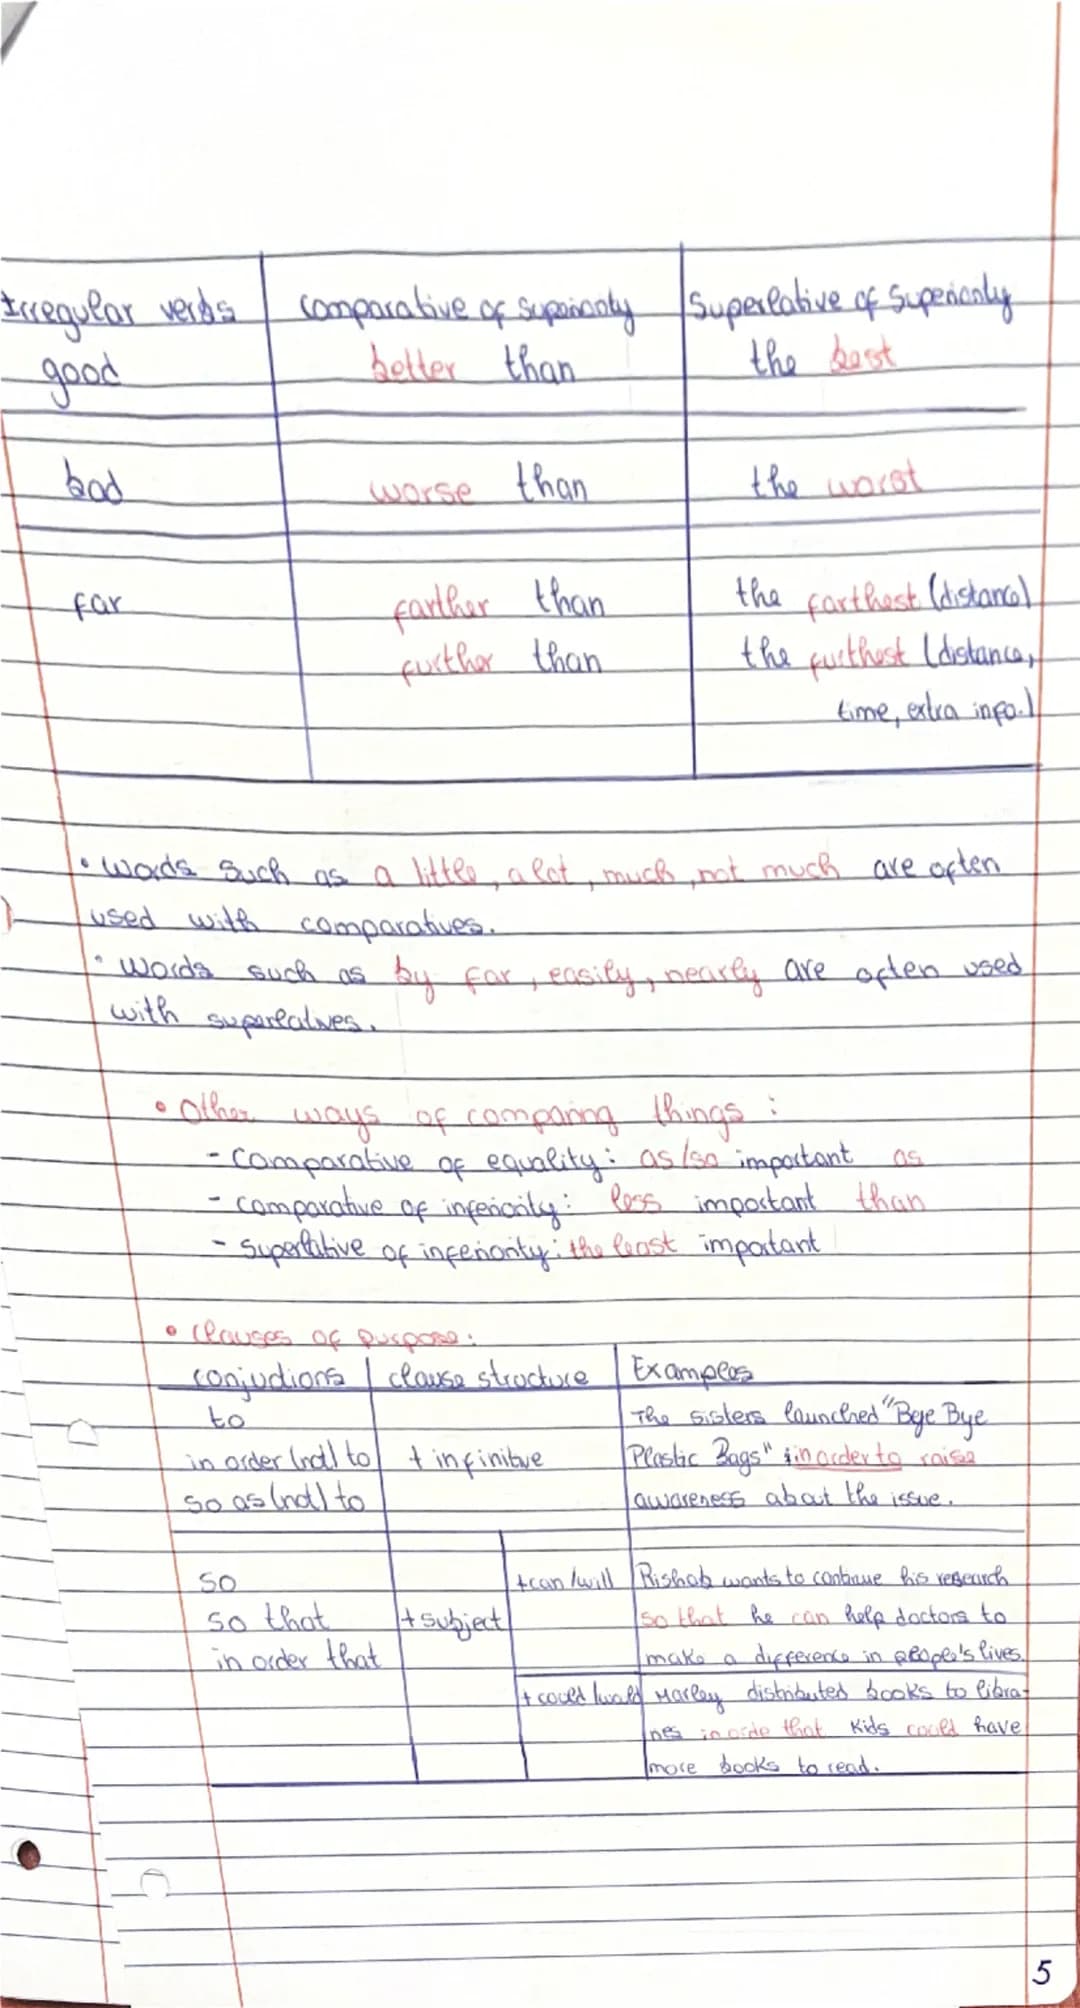 Irregular verbs | comparative of superiority | Superlative of Superiority
good | better than | the best
bad | worse than | the worst
far | farther than | the farthest (distance)
further than | the furthest (distance,
time, extra info.)
• Words such as a little, a lot, much, not much are often
used with comparatives.
• Words such as by far, easily, nearly are often used
with superlatives.
• Other ways of comparing things :
- Comparative of equality : as/so important as
- comparative of inferiority : less important than
- Superlative of inferiority : the least important
• Clauses of purpose :
conjuctions | clause structure | Examples
to | The sisters launched "Bye Bye
in order (not) to | + infinitive | Plastic Bags" in order to raise
so as (not) to | awareness about the issue.
so | +can/will | Rishab wants to continue his research
so that | + subject | so that he can help doctors to
in order that | make a difference in people's lives.
+ could/would | Marley distributed books to libra-
ries in orde that kids could have
more books to read.
5